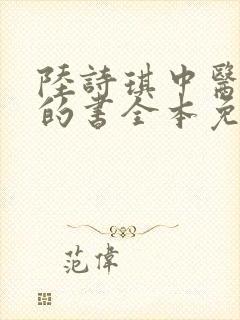 陸詩琪中醫
的書全本免
范偉